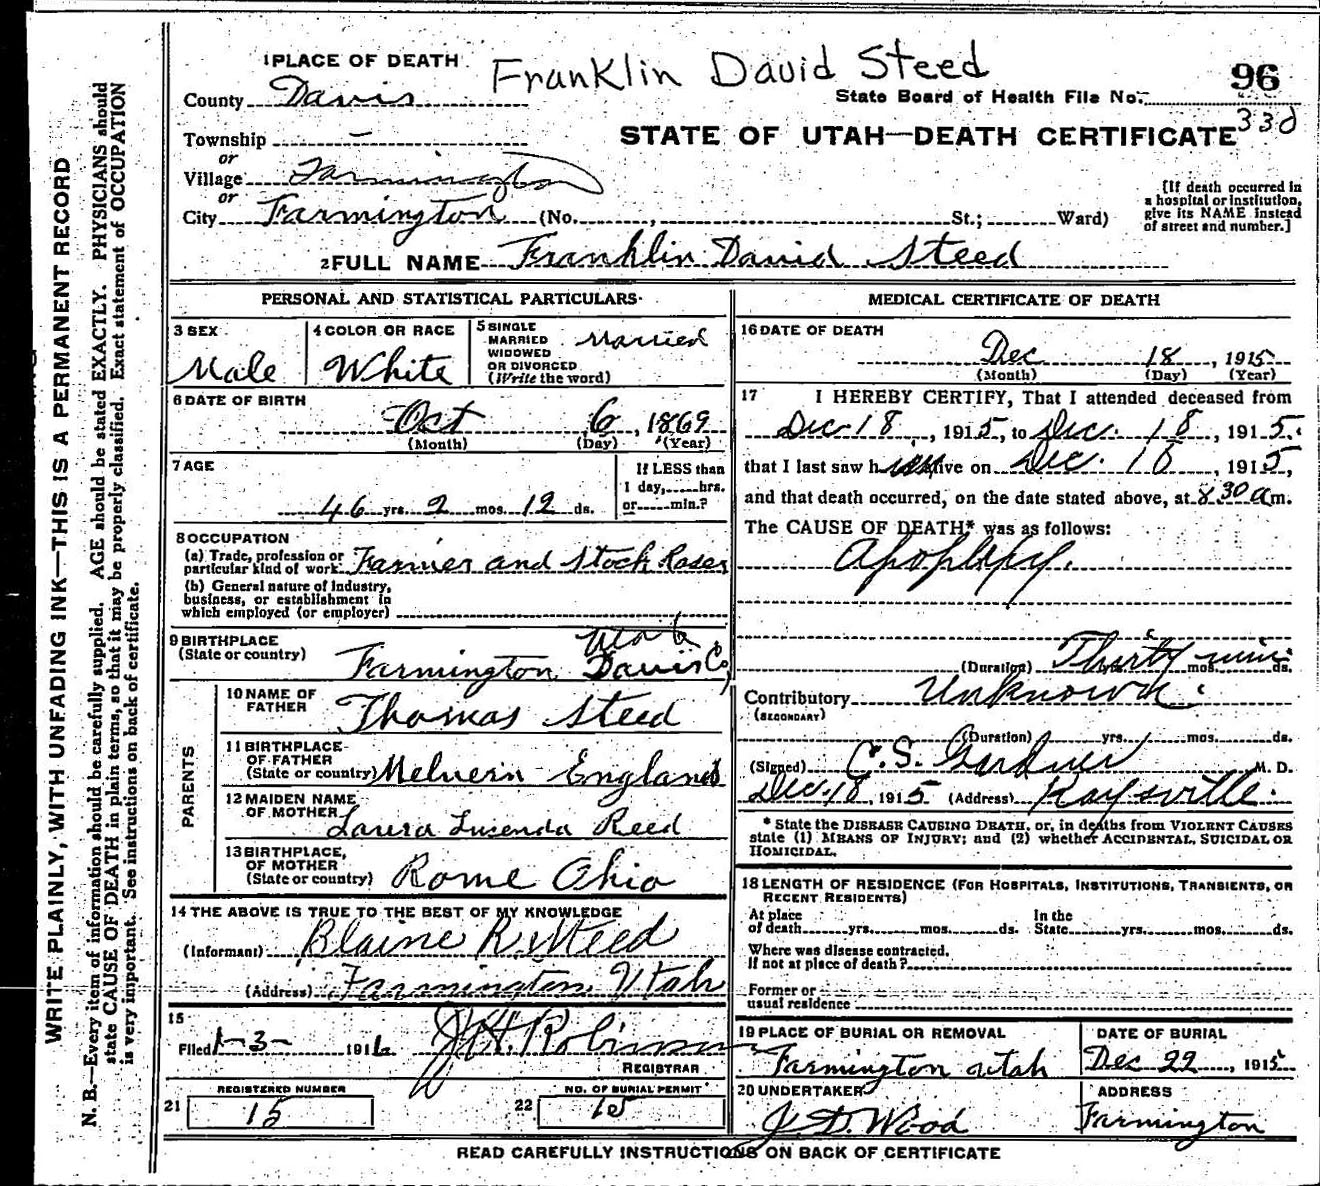 Franklin David Steed
1 PLACE OF DEATH
County Davis
State Board of Health File No. 96
330
Township –
STATE OF UTAH—DEATH CERTIFICATE
or
Village Farmington
or
City Farmington (No. , St.; Ward)
[If death occurred in a hospital or institution, give its NAME instead of street and number.]
2 FULL NAME Franklin David Steed
PERSONAL AND STATISTICAL PARTICULARS
3 SEX
Male
4 COLOR OR RACE
White
5 SINGLE MARRIED WIDOWED OR DIVORCED (Write the word) Married
6 DATE OF BIRTH
Oct 6, 1869
(Month) (Day) (Year)
7 AGE
46 yrs. 2 mos. 12 ds.
If LESS than 1 day, hrs. or min.?
8 OCCUPATION
(a) Trade, profession or particular kind of work Farmer and Stock Raser
(b) General nature of industry, business, or establishment in which employed (or employer)
9 BIRTHPLACE
(State or country) Farmington Davis Co, Utah
PARENTS
10 NAME OF FATHER Thomas Steed
11 BIRTHPLACE OF FATHER
(State or country) Melvern England
12 MAIDEN NAME OF MOTHER Laura Lucenda Reed
13 BIRTHPLACE, OF MOTHER
(State or country) Rome Ohio
14 THE ABOVE IS TRUE TO THE BEST OF MY KNOWLEDGE
(Informant) Blaine R. Steed
(Address) Farmington, Utah
15
Filed 1-3- 1916 J.H. Robinson
REGISTRAR
REGISTERED NUMBER
21 15
NO. OF BURIAL PERMIT
22 15
MEDICAL CERTIFICATE OF DEATH
16 DATE OF DEATH
Dec 18, 1915
(Month) (Day) (Year)
17 I HEREBY CERTIFY, That I attended deceased from
Dec 18, 1915, to Dec. 18, 1915.
that I last saw him alive on Dec. 18, 1915,
and that death occurred, on the date stated above, at 8 30 a m.
The CAUSE OF DEATH* was as follows:
Apoplexy.
(Duration) Thirty mos. min. ds.
Contributory Unknown.
(SECONDARY)
(Duration) yrs. mos. ds.
(Signed) C.S. Gardner M. D.
Dec. 18, 1915 (Address) Kaysville.
* State the DISEASE CAUSING DEATH, or, in deaths from VIOLENT CAUSES
state (1) MEANS OF INJURY; and (2) whether ACCIDENTAL, SUICIDAL OR
HOMICIDAL.
18 LENGTH OF RESIDENCE (FOR HOSPITALS, INSTITUTIONS, TRANSIENTS, OR
RECENT RESIDENTS)
At place of death yrs. mos. ds. In the State yrs. mos. ds.
Where was disease contracted,
If not at place of death?
Former or usual residence
19 PLACE OF BURIAL OR REMOVAL
Farmington Utah
DATE OF BURIAL
Dec 22, 1915
20 UNDERTAKER
J D. Wood
ADDRESS
Farmington
READ CAREFULLY INSTRUCTIONS ON BACK OF CERTIFICATE
WRITE PLAINLY, WITH UNFADING INK—THIS IS A PERMANENT RECORD
N. B.—Every item of information should be carefully supplied. AGE should be stated EXACTLY. PHYSICIANS should
state CAUSE OF DEATH in plain terms, so that it may be properly classified. Exact statement of OCCUPATION
is very important. See instructions on back of certificate.